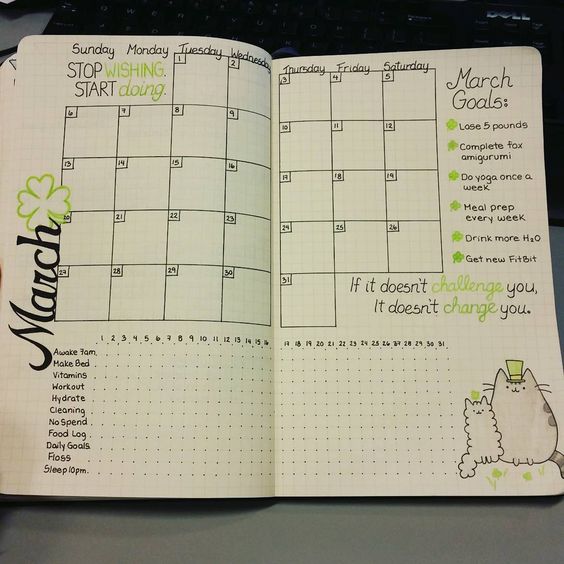 DELL
Sunday Monday Tuesday Wednesday
STOP WISHING.
START doing.
1 2
6 7 8 9
13 14 15 16
20 21 22 23
27 28 29 30
March
Thursday Friday Saturday
3 4 5
10 11 12
17 18 19
24 25 26
31
March
Goals:
Lose 5 pounds
Complete fox
amigurumi
Do yoga once a
week
Meal prep
every week
Drink more H2O
Get new FitBit
If it doesn't challenge you,
It doesn't change you.
1 2 3 4 5 6 7 8 9 10 11 12 13 14 15 16 17 18 19 20 21 22 23 24 25 26 27 28 29 30 31
Awake 7am
Make Bed
Vitamins
Workout
Hydrate
Cleaning
No Spend
Food Log
Daily Goals
Floss
Sleep 10pm